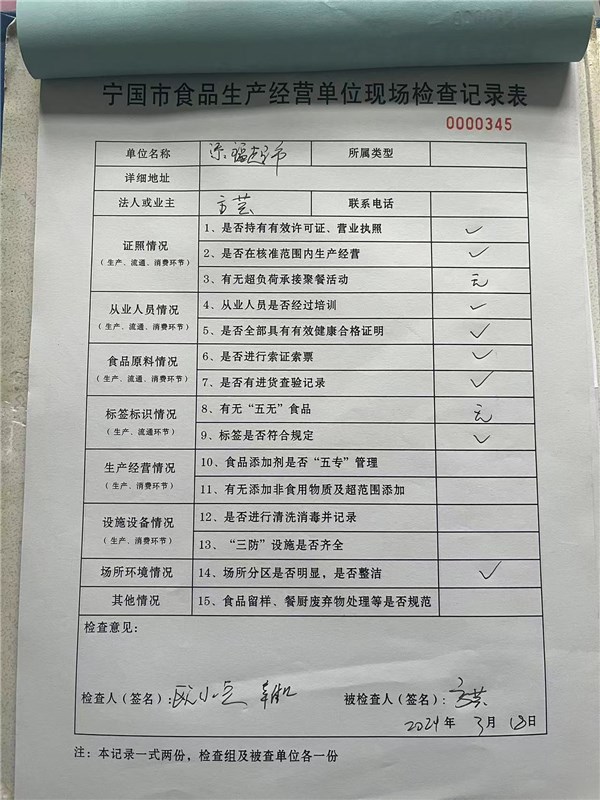 宁国市食品生产经营单位现场检查记录表
0000345
单位名称 福超市 所属类型
详细地址
法人或业主 联系电话
证照情况
(生产、流通、消费环节)
1、是否持有有效许可证、营业执照 ✓
2、是否在核准范围内生产经营 ✓
3、有无超负荷承接聚餐活动 无
从业人员情况
(生产、流通、消费环节)
4、从业人员是否经过培训 ✓
5、是否全部具有有效健康合格证明 ✓
食品原料情况
(生产、流通、消费环节)
6、是否进行索证索票 ✓
7、是否有进货查验记录 ✓
标签标识情况
(生产、流通环节)
8、有无“五无”食品 无
9、标签是否符合规定 ✓
生产经营情况
(生产、消费环节)
10、食品添加剂是否“五专”管理
11、有无添加非食用物质及超范围添加
设施设备情况
(生产、消费环节)
12、是否进行清洗消毒并记录
13、“三防”设施是否齐全
场所环境情况 14、场所分区是否明显，是否整洁 ✓
其他情况 15、食品留样、餐厨废弃物处理等是否规范
检查意见：
检查人(签名)： 被检查人(签名)：
2024年 3月 18日
注：本记录一式两份，检查组及被查单位各一份